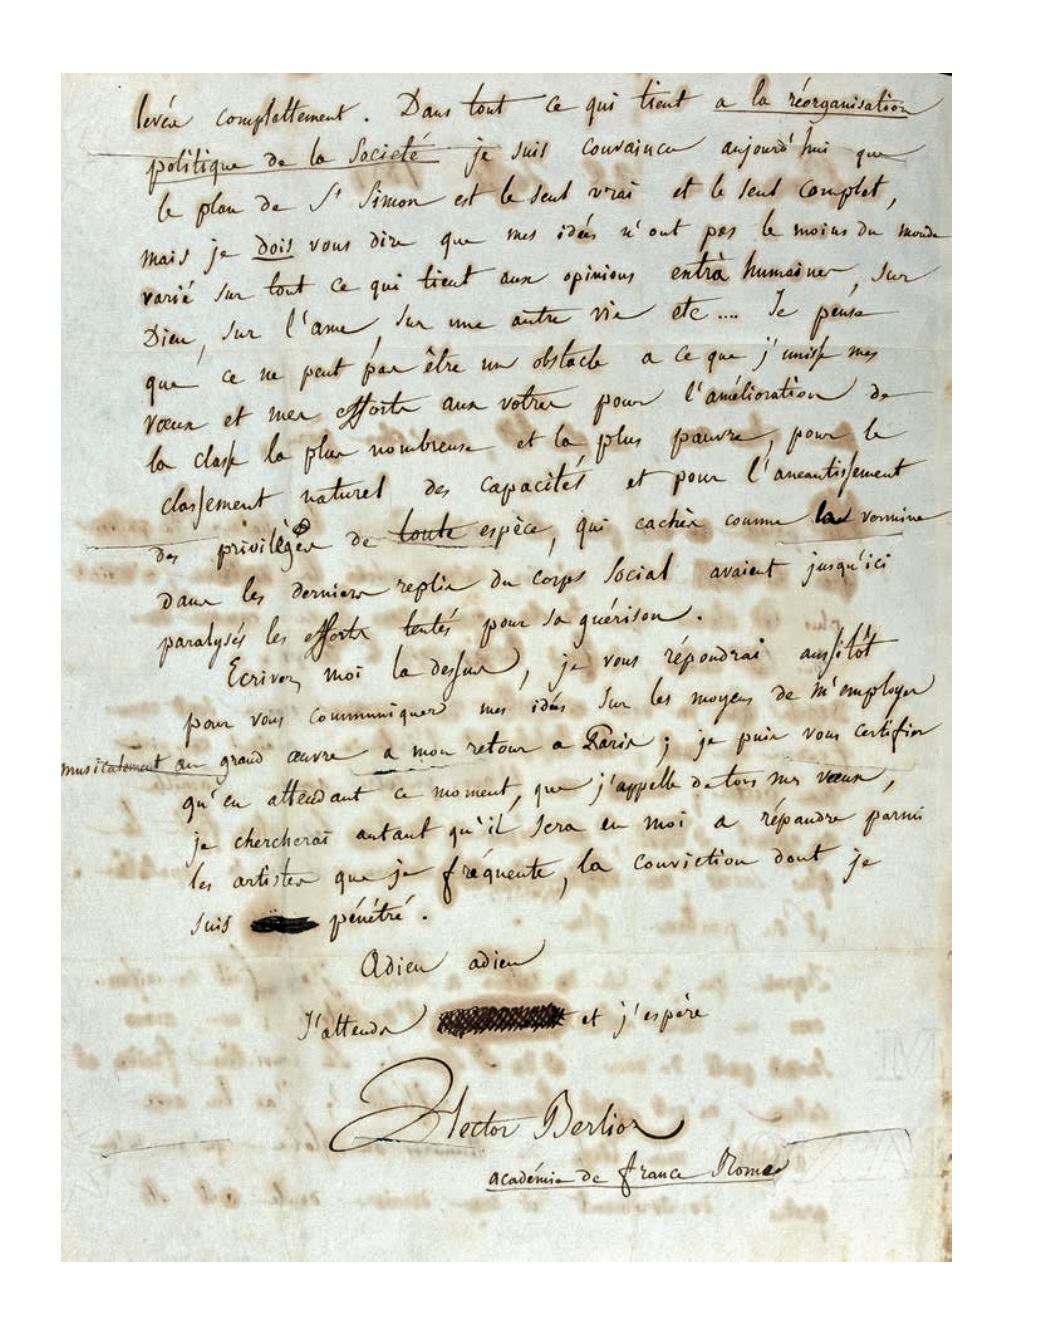 levés complettement. Dans tout ce qui tient a la réorganisation
politique de la Societé je suis convaincu aujourd'hui que
le plan de St Simon est le seul vrai et le seul complet,
mais je dois vous dire que mes idées n'ont pas le moins du monde
varié sur tout ce qui tient aux opinions extrà humaines, sur
Dieu, sur l'ame, sur une autre vie etc.... Je pense
que ce ne peut pas être un obstacle a ce que j'unisse mes
vœux et mes efforts aux votres pour l'amélioration de
la classe la plus nombreuse et la plus pauvre, pour le
classement naturel des capacités et pour l'aneantissement
des privilèges de toute espèce, qui cachés comme la vermine
dans les derniers replis du corps Social avaient jusqu'ici
paralysés les efforts tentés pour sa guérison.
Ecrivez moi la dessus, je vous répondrai aussitôt
pour vous communiquer mes idées sur les moyens de m'employer
musicalement au grand œuvre a mon retour a Paris; je puis vous certifier
qu'en attendant ce moment, que j'appelle de tous mes vœux,
je chercherai autant qu'il sera en moi a répandre parmi
les artistes que je fréquente, la conviction dont je
suis pénétré.
Adieu adieu
J'attends et j'espère
Hector Berlioz
académie de france Rome